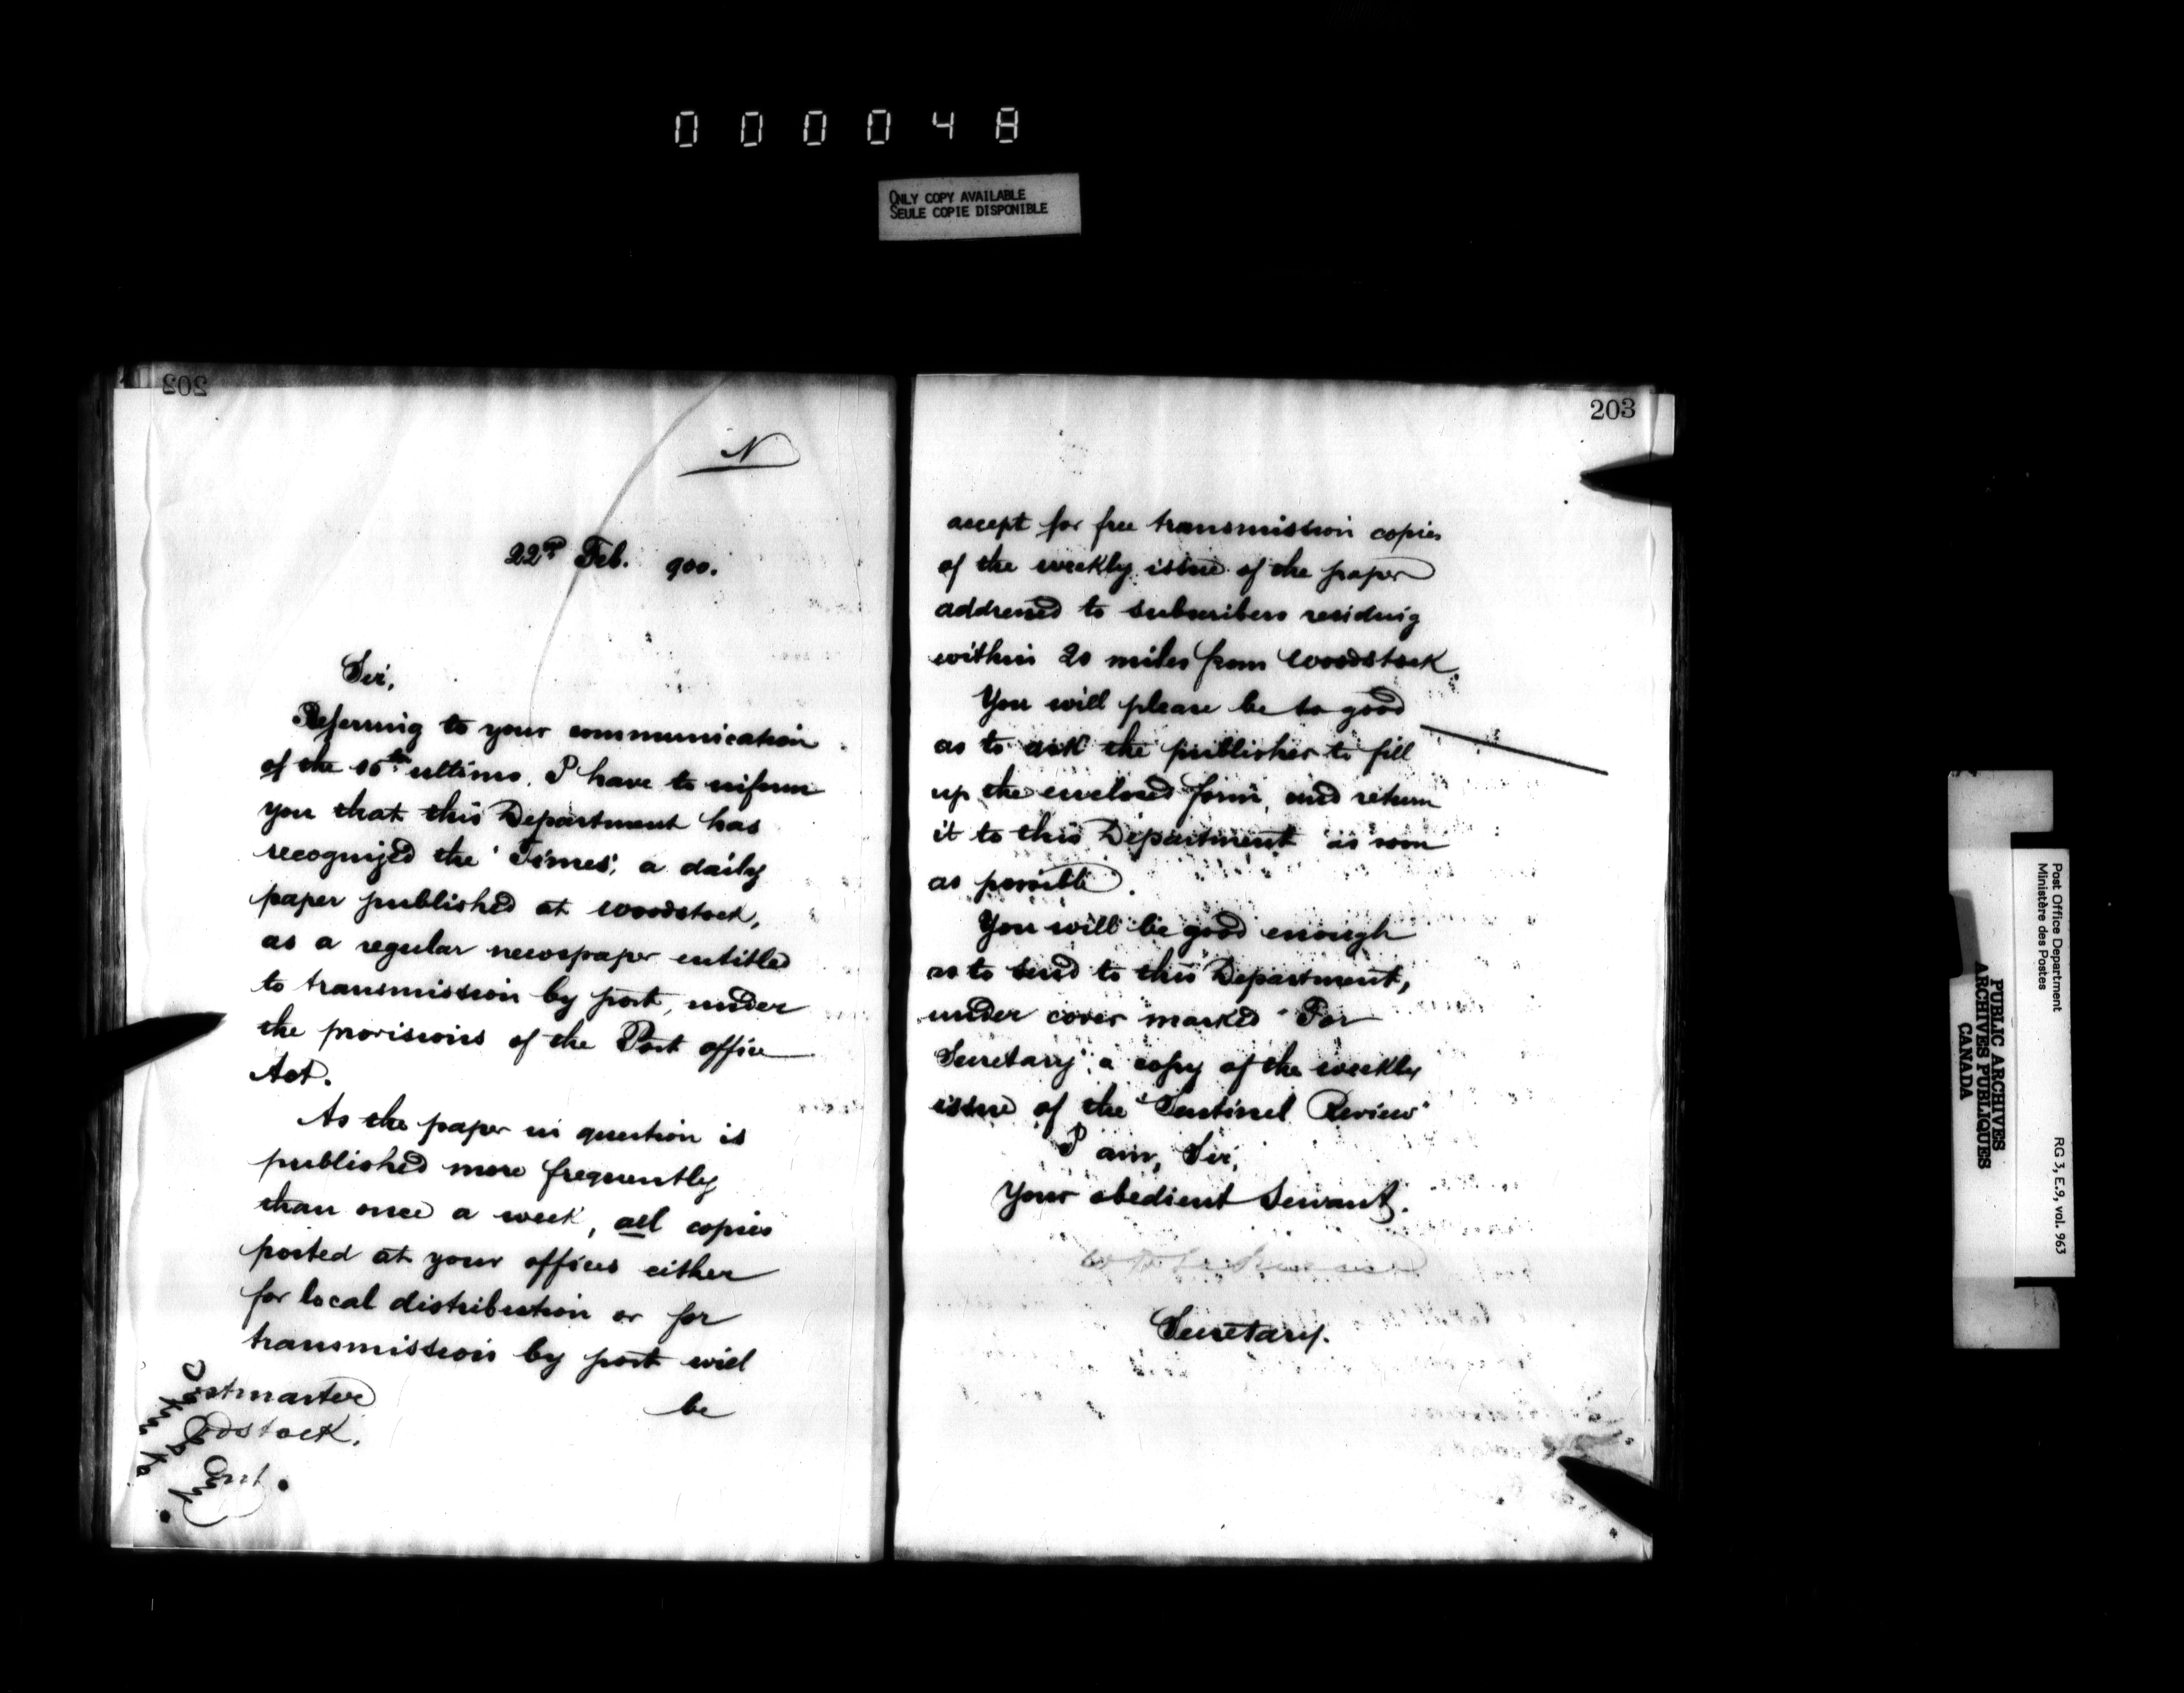 000048
ONLY COPY AVAILABLE
SEULE COPIE DISPONIBLE
202
N
22nd Feb. 900.
Sir,
Referring to your communication
of the 16th ultimo, I have to inform
you that this Department has
recognized the 'Times', a daily
paper published at Woodstock,
as a regular newspaper entitled
to transmission by post, under
the provisions of the Post office
Act.
As the paper in question is
published more frequently
than once a week, all copies
posted at your offices either
for local distribution or for
transmission by post will
be
Postmaster
Woodstock.
Ont.
203
accept for free transmission copies
of the weekly issue of the paper
addressed to subscribers residing
within 20 miles from Woodstock.
You will please be so good
as to ask the publisher to fill
up the enclosed form, and return
it to this Department as soon
as possible.
You will be good enough
as to send to this Department,
under cover marked "For
Secretary", a copy of the weekly
issue of the "Sentinel Review"
I am, Sir,
Your obedient Servant.
Secretary.
Post Office Department
Ministère des Postes
RG 3, E.9, vol. 963
PUBLIC ARCHIVES
ARCHIVES PUBLIQUES
CANADA